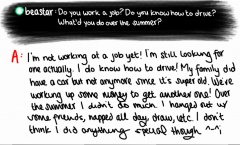 beastar: Do you work a job? Do you know how to drive?
What'd you do over the summer?
A: I'm not working at a job yet! I'm still looking for
one actually. I do know how to drive! My family did
have a car but not anymore since it's super old. We're
working up some money to get another one! Over
the summer I didn't do much. I hanged out w/
some friends, napped all day, draw, etc. I don't
think I did anything special though. ^-^;